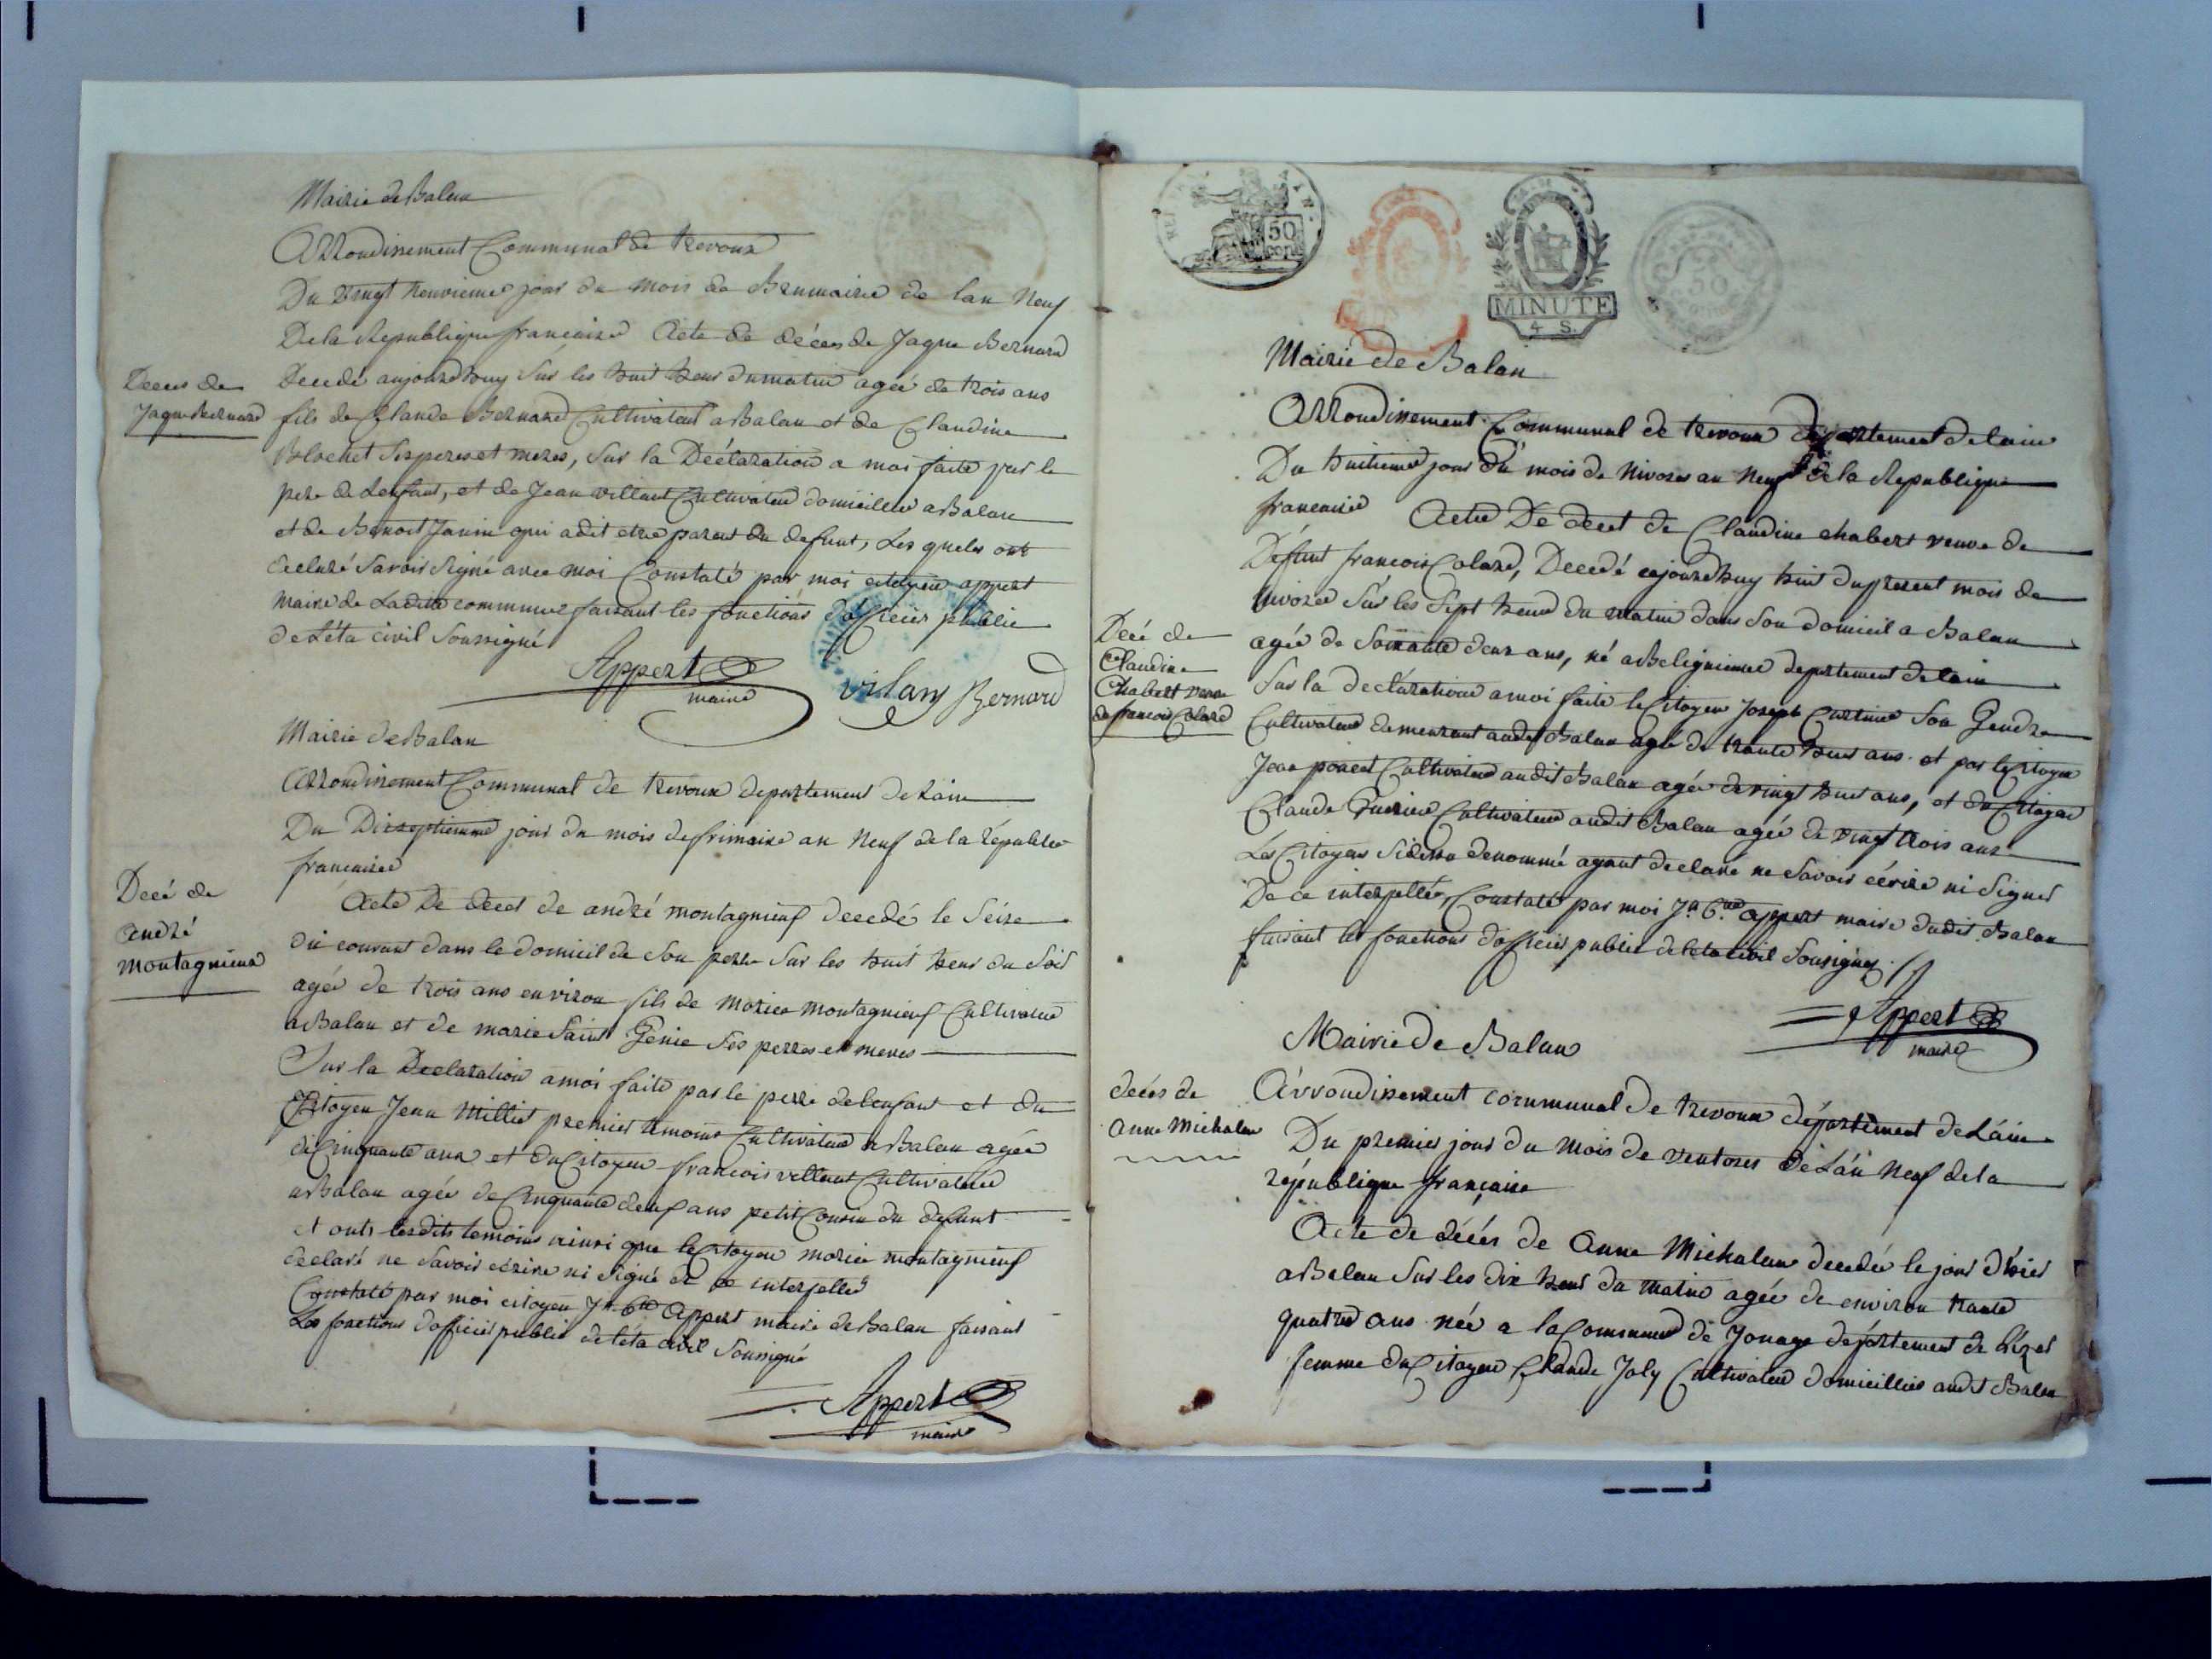 Mairie de Balan
Arrondissement Communal de trevoux
Du vingt neuvieme jour du mois de Brumaire de lan Neuf
De la Republique francaise Acte de décès de Jaque Bernard
Decedé aujourdhuy sur les huit heur du matin agée de trois ans
fils de Claude Bernard Cultivateur a Balan et de Claudine
Blochet ses peres et meres, Sur la Déclaration a moi faite par le
pere de Lenfant, et de Jean villant Cultivateur domicillié a Balan
et de Benoit Janin qui a dit etre parent du defunt, Les quels ont
declaré savoir signé avec moi Constaté par moi citoyen appert
maire de Ladite commune faisant les fonctions dofficier public
de Léta civil soussigné
Appert
maire
vilans Bernard
Deces de
Jaque Bernard
Mairie de Balan
Arrondissement Communal de trevoux departement de Lain
Du Dixseptiemme jour du mois de frimaire an Neuf de la républiee
francaisee
Acte De decet de andré montagnieuf decedé le Seize
du courant dans le domicil de son perre sur les huit heur du soir
agée de trois ans environ fils de morice montagnieuf Cultivateur
a Balan et de marie Saint Genie ses perres et meres
Sur la Declaration a moi faite par le perre de lenfant et du
Citoyen Jean Millit premier temoins Cultivateur a Balan agée
de Cinquante ans et du Citoyen francois villant Cultivateur
a Balan agée de Cinquante deuf ans petit Cousin du defunt
et onts lesdits temoins ainsi que le Citoyen morice montagnieuf
declaré ne savoir écrire ni signé de ce interpellé
Constaté par moi citoyen Jn Bte Appert maire de Balan faisant
Les fonctions dofficier public de léta civil soussigné
Appert
maire
Decé de
andré
montagnieux
MINUTE
4 S.
50
Mairie de Balan
Arrondissement Communal de trevoux departement de lain
Du huitieme jour du mois de Nivoses an Neuf de la Republique
francaise Acte De decet de Claudine chabert veuve de
Défunt francois Colard, Decedé cejourdhuy huit du present mois de
Nivose sur les Sept heure du matin dans son domicil a Balan
agée de soixante deux ans, né a Belignieux departement de lain
Sur la declaration a moi faite le Citoyen Joseph son Gendre
Cultivateur demeurant audit Balan agée de trante huit ans et par le Citoyen
Jean poncet Cultivateur audit Balan agée de vingt huit ans, et du Citoyen
Claude Cultivateur audit Balan agée de vingt trois ans
Les Citoyens sidessu denommé ayant declaré ne savoir écrire ni signer
De ce interpellé, Constaté par moi Jn Bte appert maire dudit Balan
faisant les fonctions dofficier public de léta civil soussigné
Appert
maire
Decé de
Claudine
Chabert veuve
de francois Colard
Mairie de Balan
Arrondissement communal de trevoux département de Lain
Du premier jour du mois de ventoses de Lan Neuf de la
république française
Acte de décés de Anne Michalan decedée le jour dhier
a Balan sur les dix heur du matin agée de environ trante
quatre ans née a la Commune de Jonage département de Lizer
femme du Citoyen Claude Joly Cultivateur domicilliés audit Balan
décés de
Anne Michalan